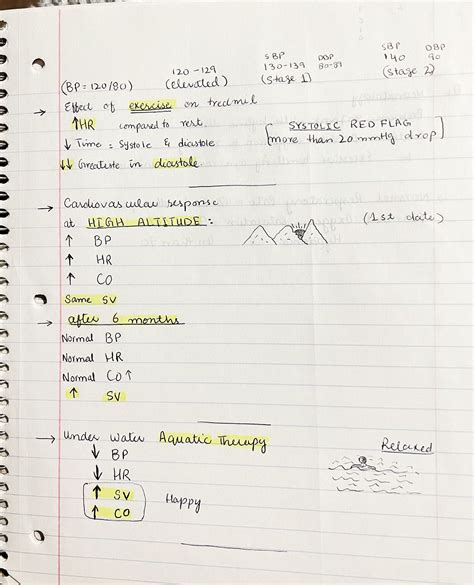 SBP DBP SBP DBP
120-129 130-139 80-89 140 90
(BP = 120/80) (elevated) (Stage 1) (Stage 2)
→ Effect of exercise on tredmil
↑HR compared to rest.
↓ Time = Systole & diastole
↓↓ Greateste in diastole
[SYSTOLIC RED FLAG
more than 20 mmHg drop]
→ Cardiovascular response
at HIGH ALTITUDE: (1st date)
↑ BP
↑ HR
↑ CO
Same SV
→ after 6 months
Normal BP
Normal HR
Normal CO↑
↑ SV
→ Under Water Aquatic Therapy Relaxed
↓ BP
↓ HR
↑ SV Happy
↑ CO